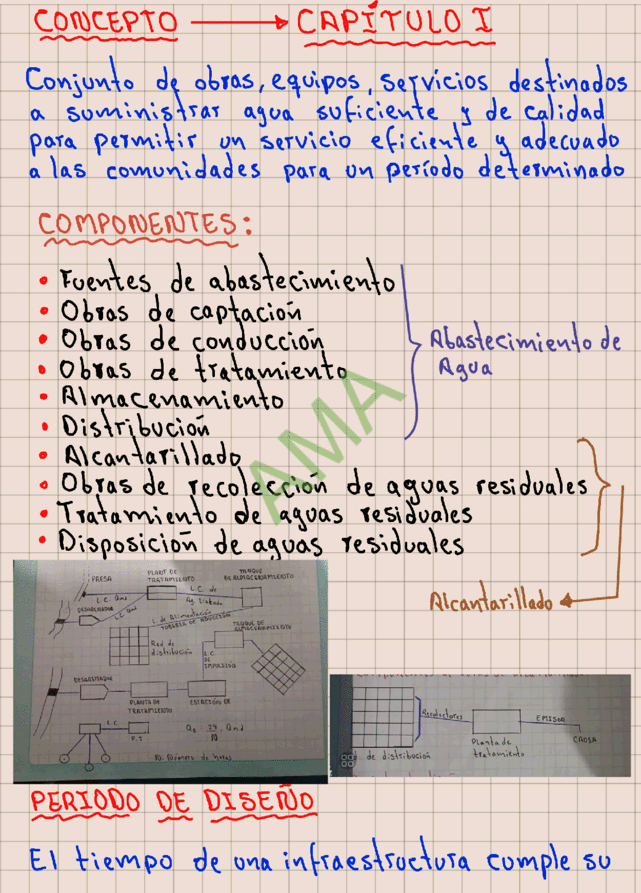 CONCEPTO → CAPÍTULO I
Conjunto de obras, equipos, servicios destinados
a suministrar agua suficiente y de calidad
para permitir un servicio eficiente y adecuado
a las comunidades para un período determinado
COMPONENTES:
• Fuentes de abastecimiento
• Obras de captación
• Obras de conducción
• Obras de tratamiento
• Almacenamiento
• Distribución
Abastecimiento de
Agua
• Alcantarillado
• Obras de recolección de aguas residuales
• Tratamiento de aguas residuales
• Disposición de aguas residuales
Alcantarillado
AMA
PRESA
PLANT. DE
TRATAMIENTO
TANQUE
DE ALMACENAMIENTO
L.C. Qmd
L.C. de
Ag. tratada
DESARENADOR
L.C. Qmd
L. de Alimentación
TUBERIA DE ADUCCION
Red de
distribución
TANQUE DE
ALMACENAMIENTO
L.C.
DE
IMPULSIÓN
DESARENADOR
PLANTA DE
TRATAMIENTO
ESTACIÓN DE
L.C.
P.T
Qb = 24 . Qmd
N
N: Número de horas
Recolectores
EMISOR
CAUSA
. de distribución
Planta de
tratamiento
PERIODO DE DISEÑO
El tiempo de una infraestructura cumple su